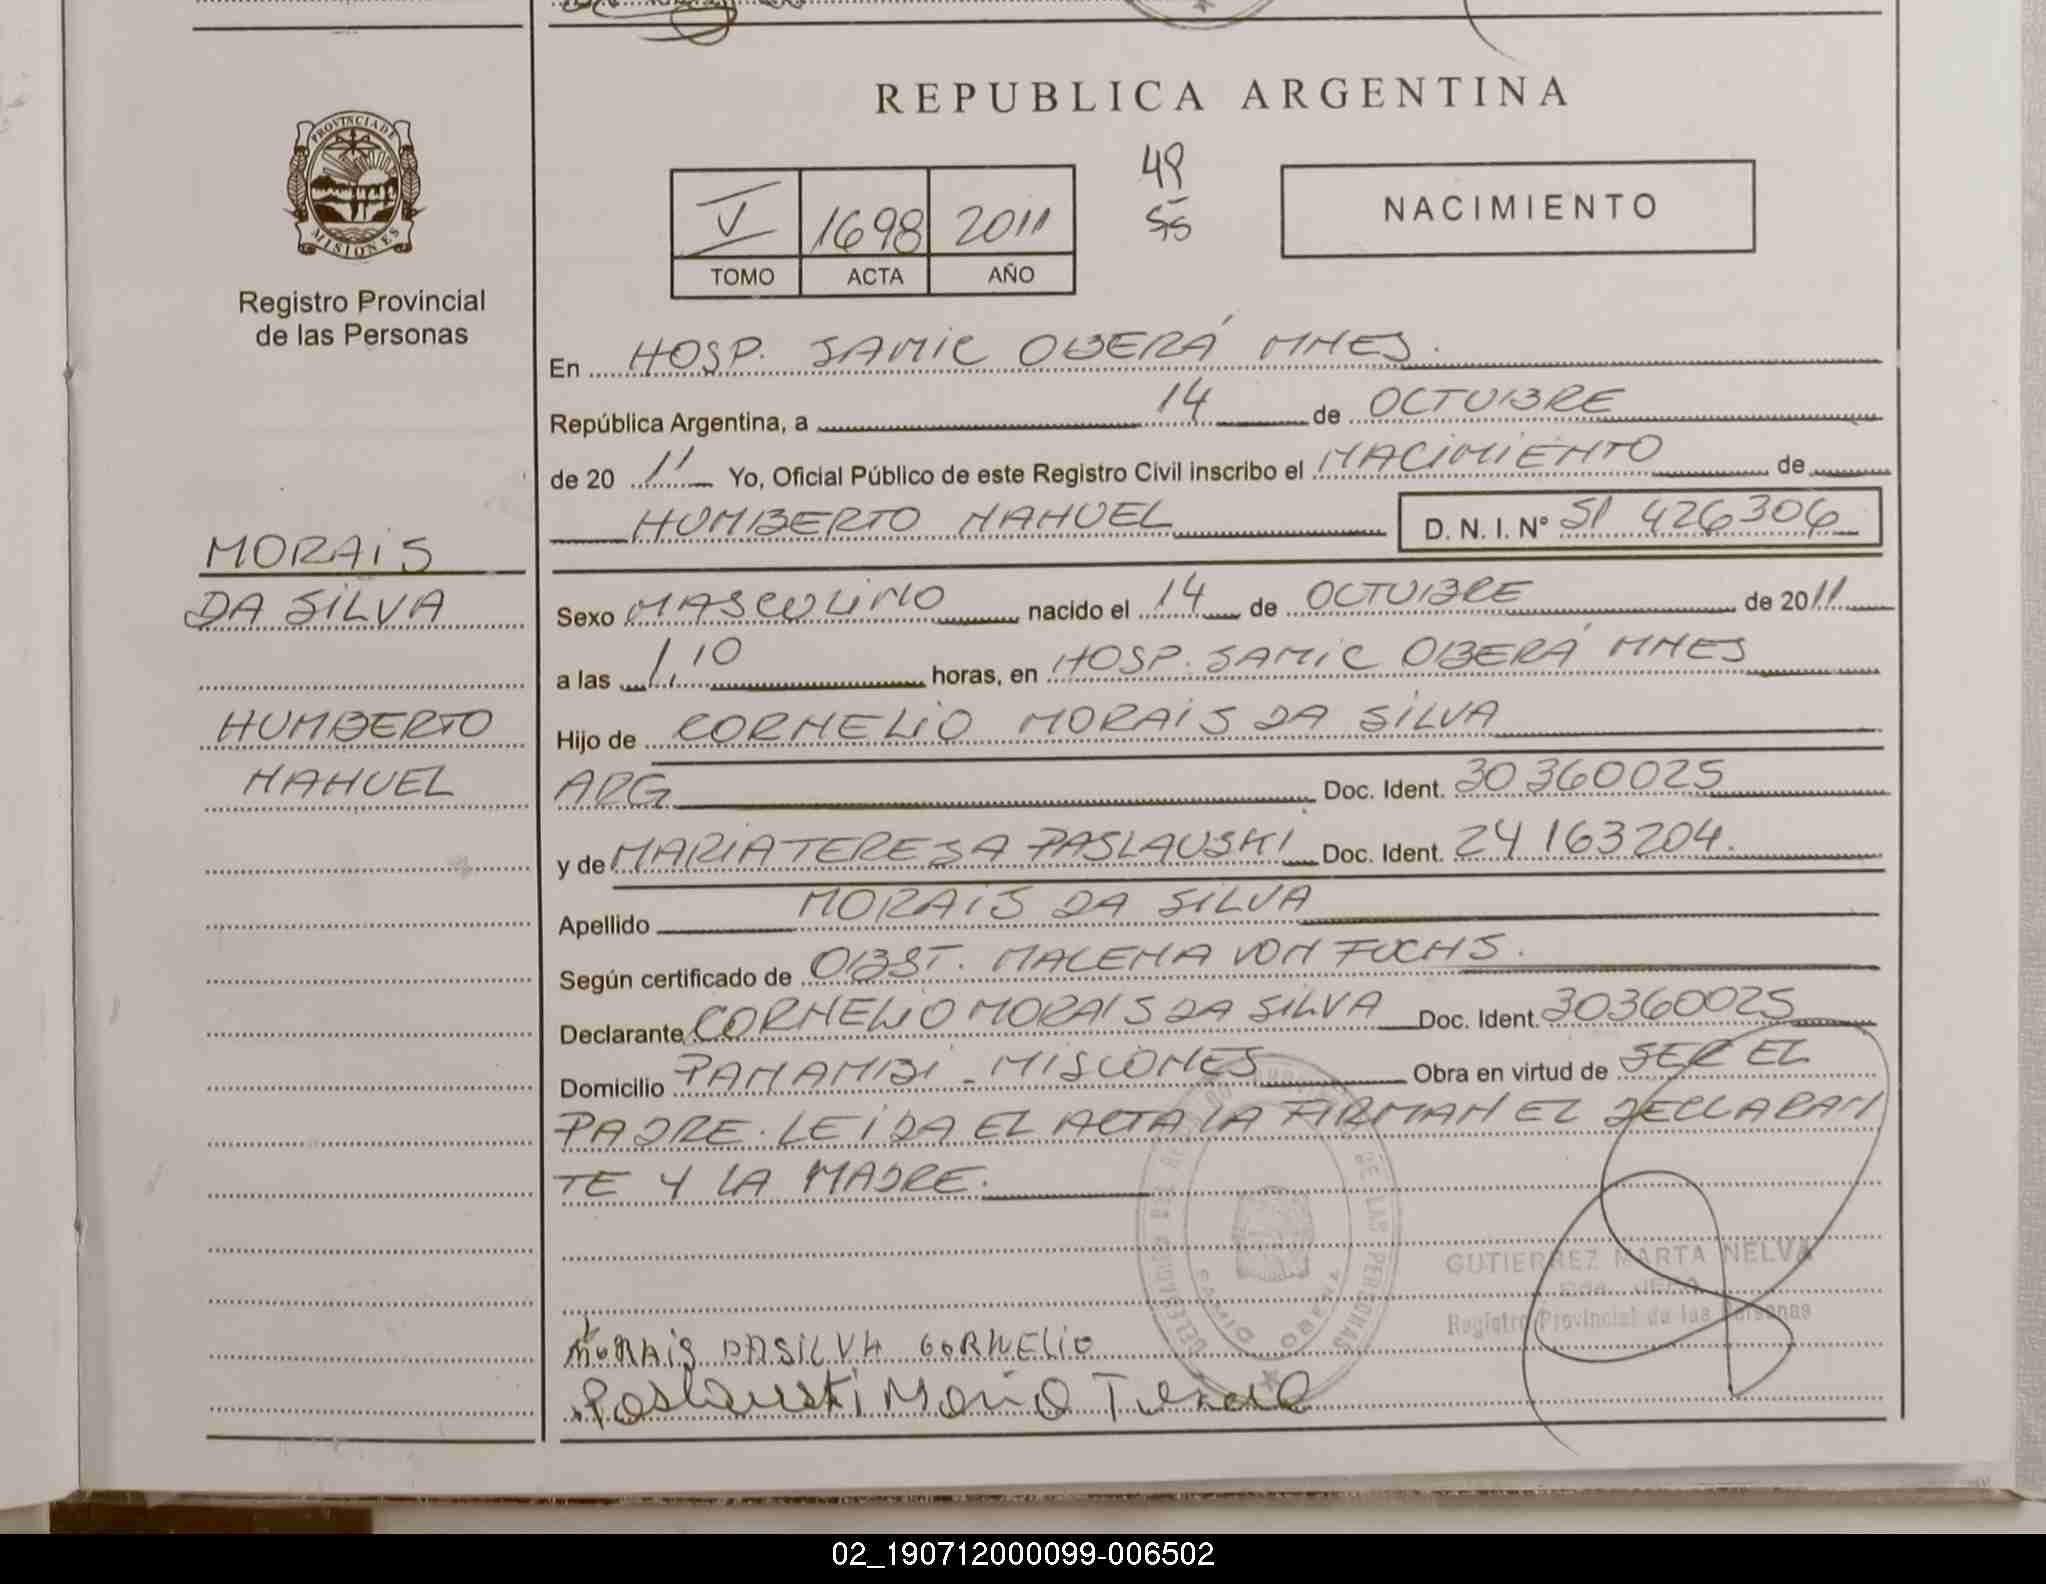 REPUBLICA ARGENTINA
PROVINCIA DE
MISIONES
Registro Provincial
de las Personas
V 1698 2011
TOMO ACTA AÑO
48
55
NACIMIENTO
En HOSP. SAMIC OBERÁ MNES.
República Argentina, a 14 de OCTUBRE
de 20 11 Yo, Oficial Público de este Registro Civil inscribo el NACIMIENTO de
HUMBERTO NAHUEL D. N. I. N° 51 426306
MORAIS
DA SILVA
HUMBERTO
NAHUEL
Sexo MASCULINO nacido el 14 de OCTUBRE de 2011
a las 1,10 horas, en HOSP. SAMIC OBERÁ MNES
Hijo de CORNELIO MORAIS DA SILVA
ARG Doc. Ident. 30360025
y de MARIA TERESA PASLAUSKI Doc. Ident. 24 163204.
Apellido MORAIS DA SILVA
Según certificado de OBST. MALENA VON FUCHS.
Declarante CORNELIO MORAIS DA SILVA Doc. Ident. 30360025
Domicilio PANAMBI - MISIONES Obra en virtud de SER EL
PADRE. LEIDA EL ACTA LA FIRMAN EL DECLARAN
TE Y LA MADRE.
GUTIERREZ MARTA NELVA
Registro Provincial de las Personas
DE LAS PERSONAS
SAMIC OBERA
MORAIS DASILVA CORNELIO
Paslauski Maria Teresa
02_190712000099-006502